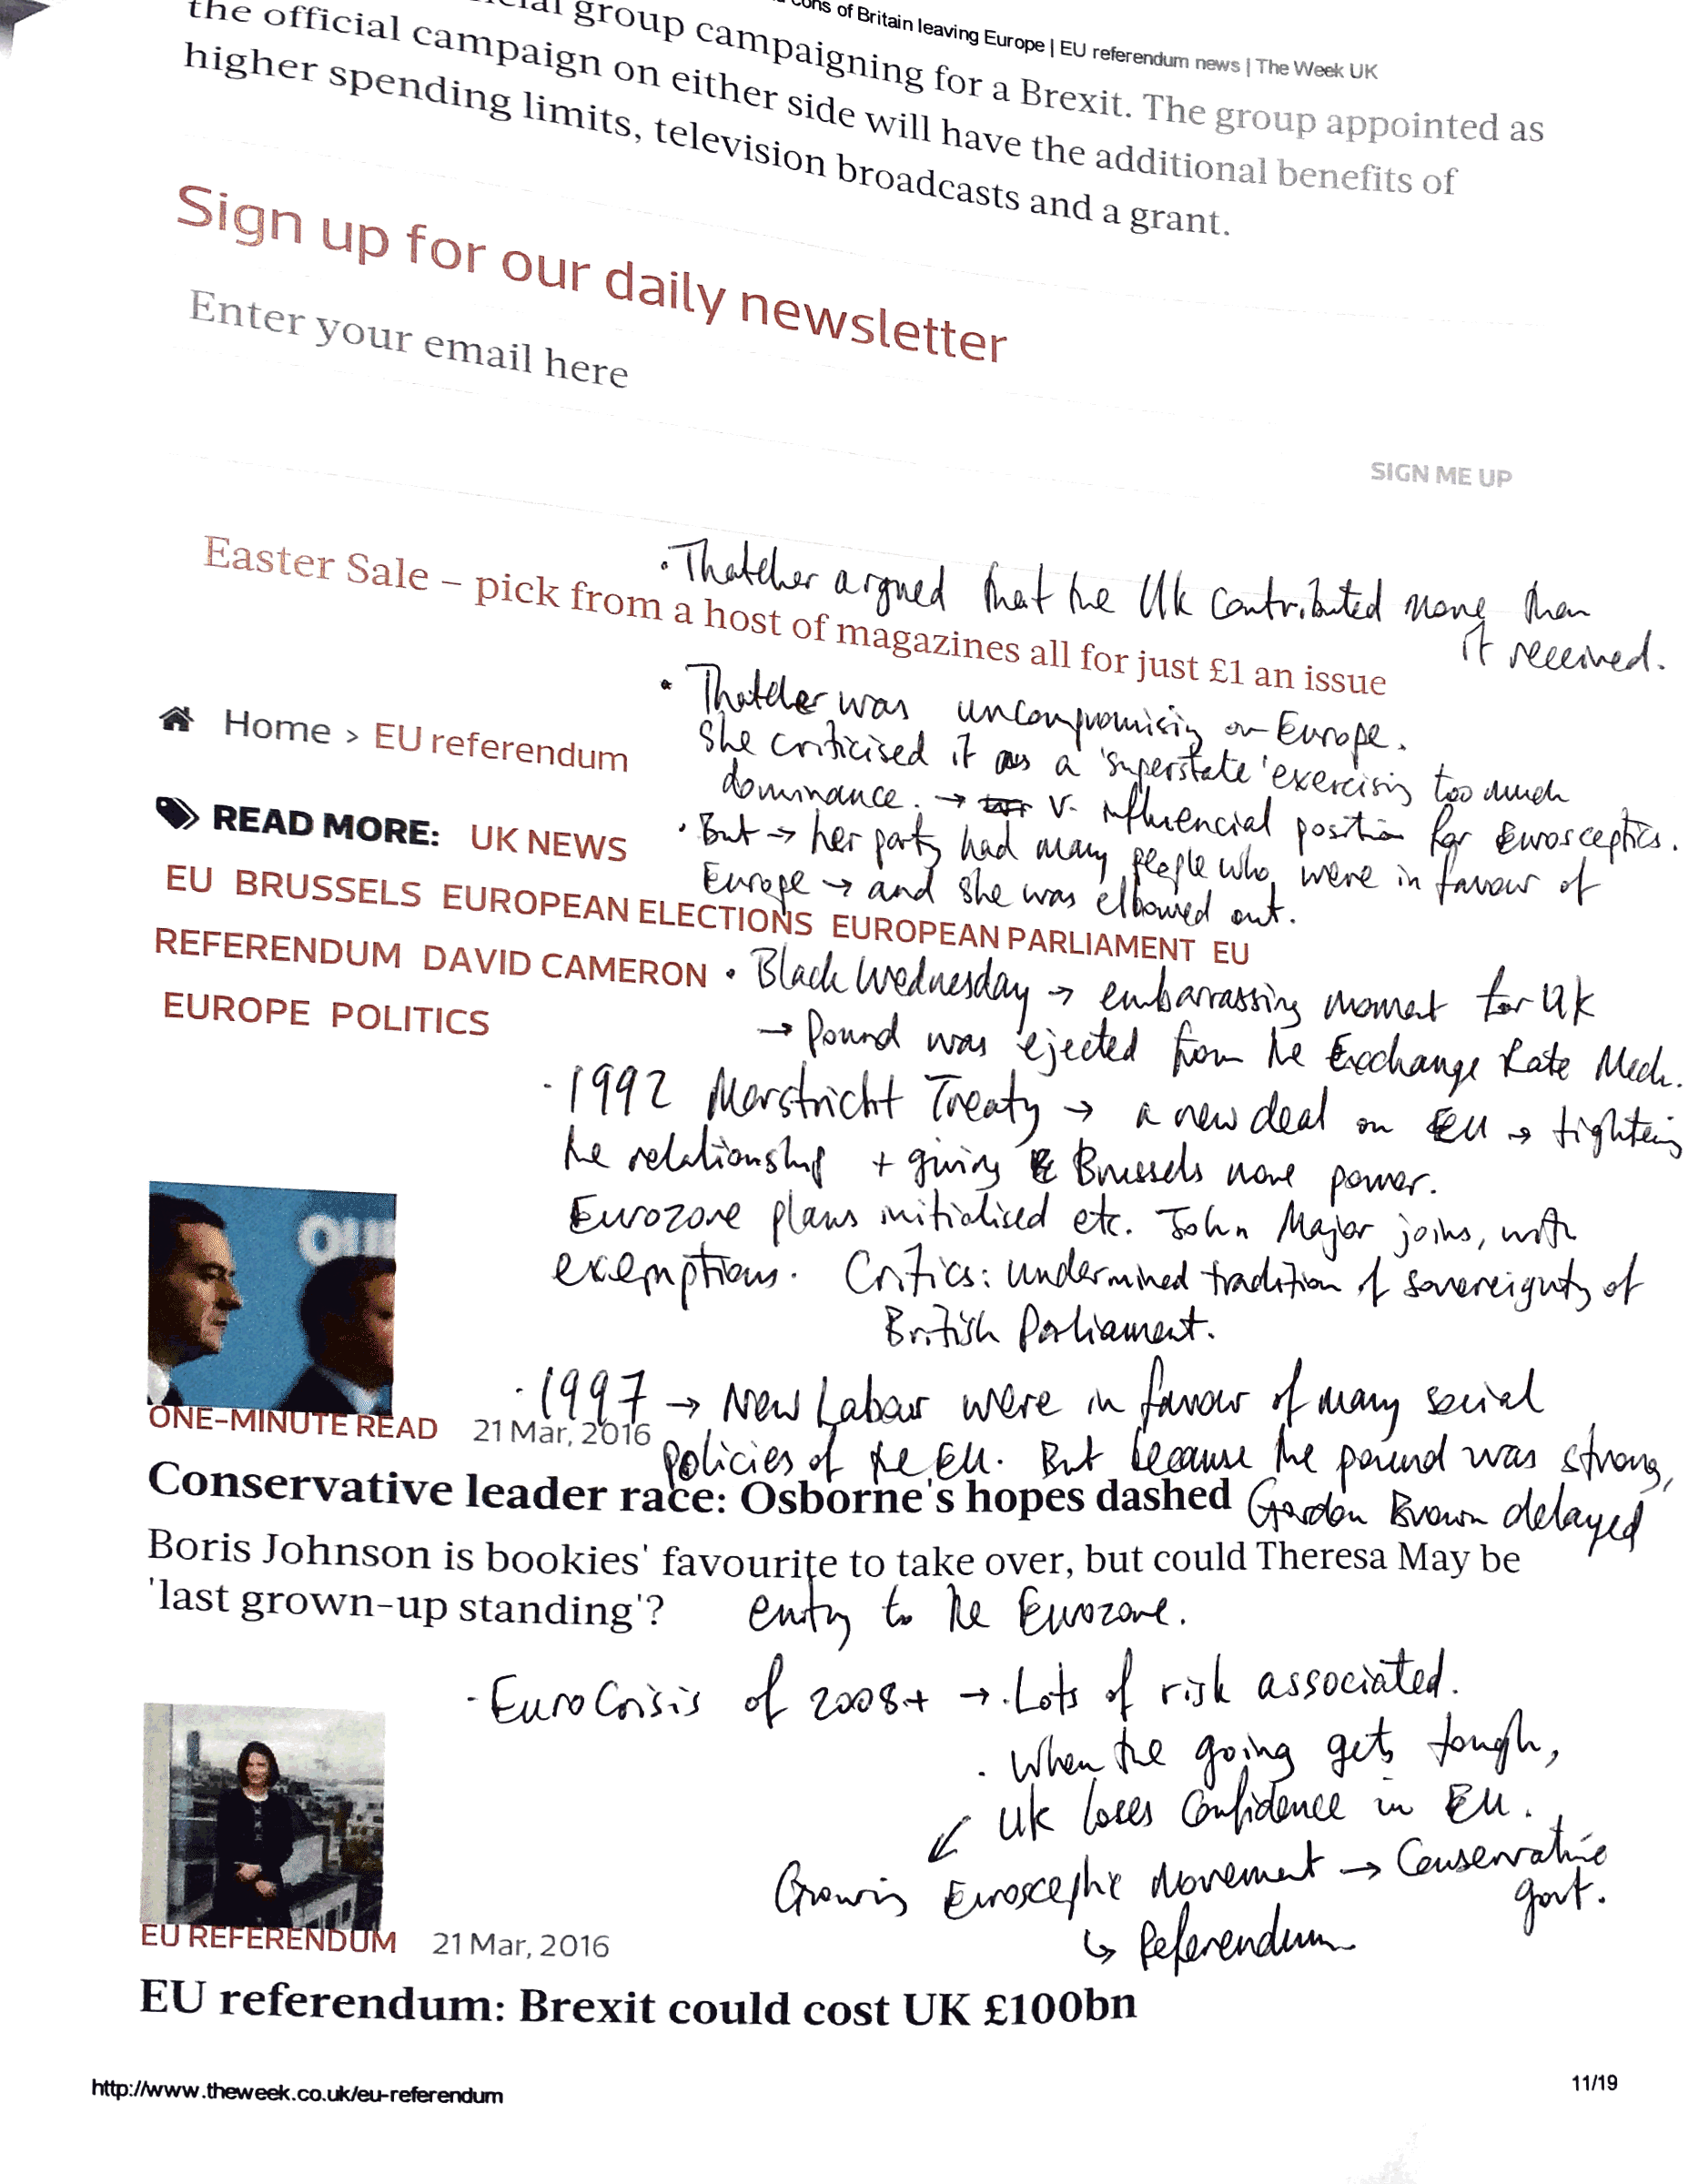 cons of Britain leaving Europe | EU referendum news | The Week UK
group campaigning for a Brexit. The group appointed as
the official campaign on either side will have the additional benefits of
higher spending limits, television broadcasts and a grant.
Sign up for our daily newsletter
Enter your email here
SIGN ME UP
Easter Sale – pick from a host of magazines all for just £1 an issue
• Thatcher argued that the UK contributed more than
it received.
Home > EU referendum
• Thatcher was uncompromising on Europe.
She criticised it as a 'superstate' exercising too much
dominance. → v. influencial position for Eurosceptics.
READ MORE: UK NEWS
• But → her party had many people who were in favour of
Europe → and she was elbowed out.
EU BRUSSELS EUROPEAN ELECTIONS EUROPEAN PARLIAMENT EU
REFERENDUM DAVID CAMERON
EUROPE POLITICS
• Black Wednesday → embarrassing moment for UK
→ Pound was ejected from the Exchange Rate Mech.
· 1992 Marstricht Treaty → a new deal on EU → tighteing
the relationship + giving Brussels more power.
Eurozone plans initialised etc. John Major joins, with
exemptions. Critics: undermined tradition of sovereignty of
British Parliament.
OUR
· 1997 → New Labour were in favour of many social
policies of the EU. But because the pound was strong,
Gordon Brown delayed
entry to the Eurozone.
ONE-MINUTE READ 21 Mar, 2016
Conservative leader race: Osborne's hopes dashed
Boris Johnson is bookies' favourite to take over, but could Theresa May be
'last grown-up standing'?
- Euro Crisis of 2008+ → · Lots of risk associated.
· When the going gets tough,
UK loses confidence in EU.
↙
Growing Eurosceptic Movement → Conservative
govt.
↳ Referendum
EU REFERENDUM 21 Mar, 2016
EU referendum: Brexit could cost UK £100bn
http://www.theweek.co.uk/eu-referendum
11/19